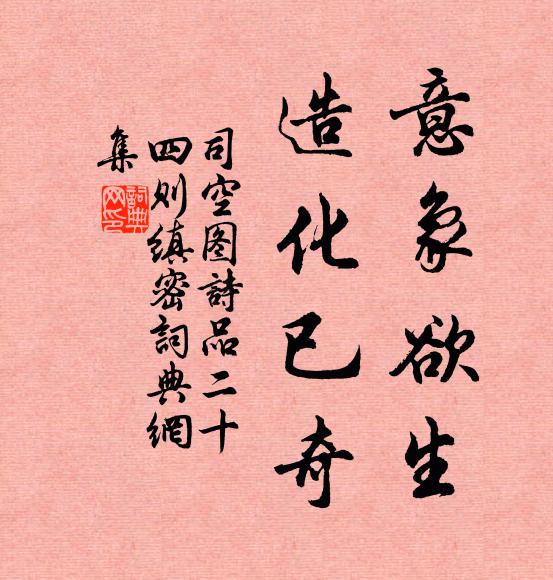 意象欲生
造化已奇
司空图詩品二十
四则縝密詞典網
集
詞典网印